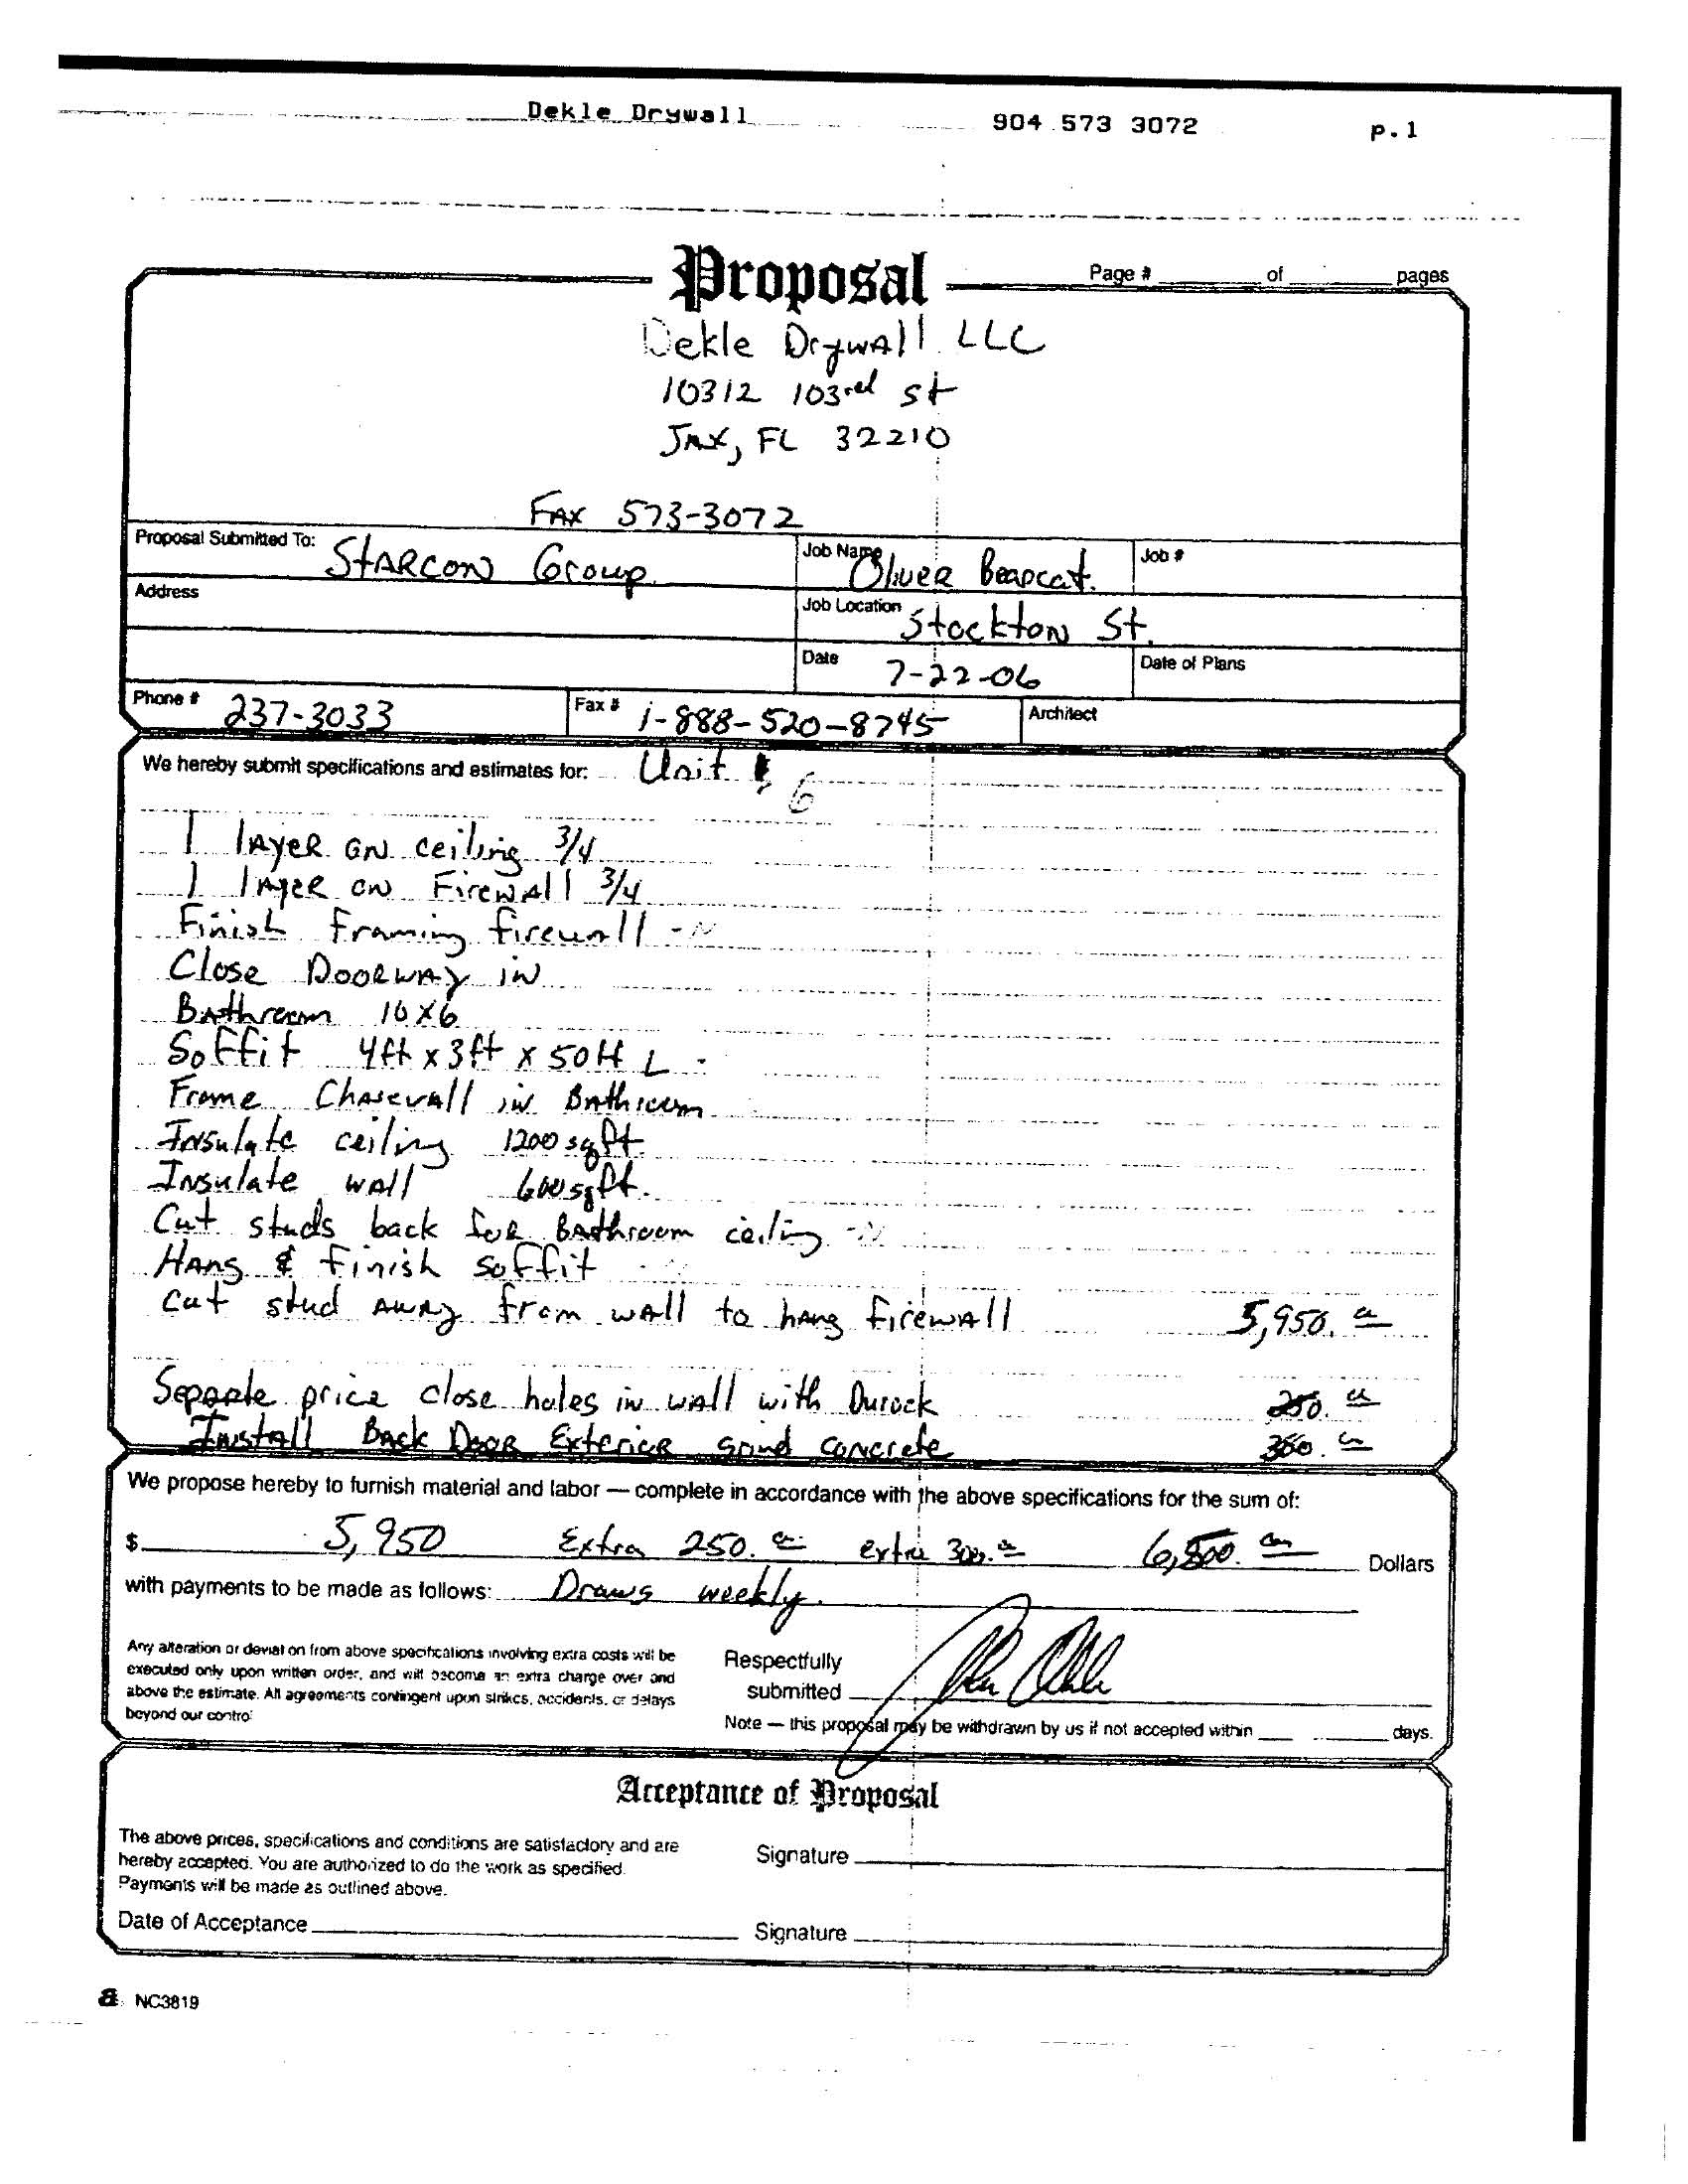 Dekle Drywall 904 573 3072 p.1
Proposal Page # of pages
Dekle Drywall LLC
10312 103rd St
JAX, FL 32210
FAX 573-3072
Proposal Submitted To: STARCON Group Job Name Oliver Bearcat. Job #
Address Job Location Stockton St.
Date 7-22-06 Date of Plans
Phone # 237-3033 Fax # 1-888-520-8745 Architect
We hereby submit specifications and estimates for: Unit 6
1 layer on ceiling 3/4
1 layer on Firewall 3/4
Finish framing firewall
Close Doorway in
Bathroom 10x6
Soffit 4ft x 3ft x 50ft L
Frame Chasewall in Bathroom
Insulate ceiling 1200 sqft
Insulate wall 600 sqft.
Cut studs back for Bathroom ceiling
Hang & Finish Soffit
Cut stud away from wall to hang firewall 5,950.
Separate price close holes in wall with Durock 250.
Install Back Door Exterior grind concrete
We propose hereby to furnish material and labor — complete in accordance with the above specifications for the sum of:
$ 5,950 Extra 250. extra 300. 6,500. Dollars
with payments to be made as follows: Draws weekly.
Any alteration or deviation from above specifications involving extra costs will be
executed only upon written order, and will become an extra charge over and
above the estimate. All agreements contingent upon strikes, accidents, or delays
beyond our control
Respectfully
submitted
Note — this proposal may be withdrawn by us if not accepted within days.
Acceptance of Proposal
The above prices, specifications and conditions are satisfactory and are
hereby accepted. You are authorized to do the work as specified.
Payments will be made as outlined above.
Signature
Date of Acceptance Signature
a NC3819